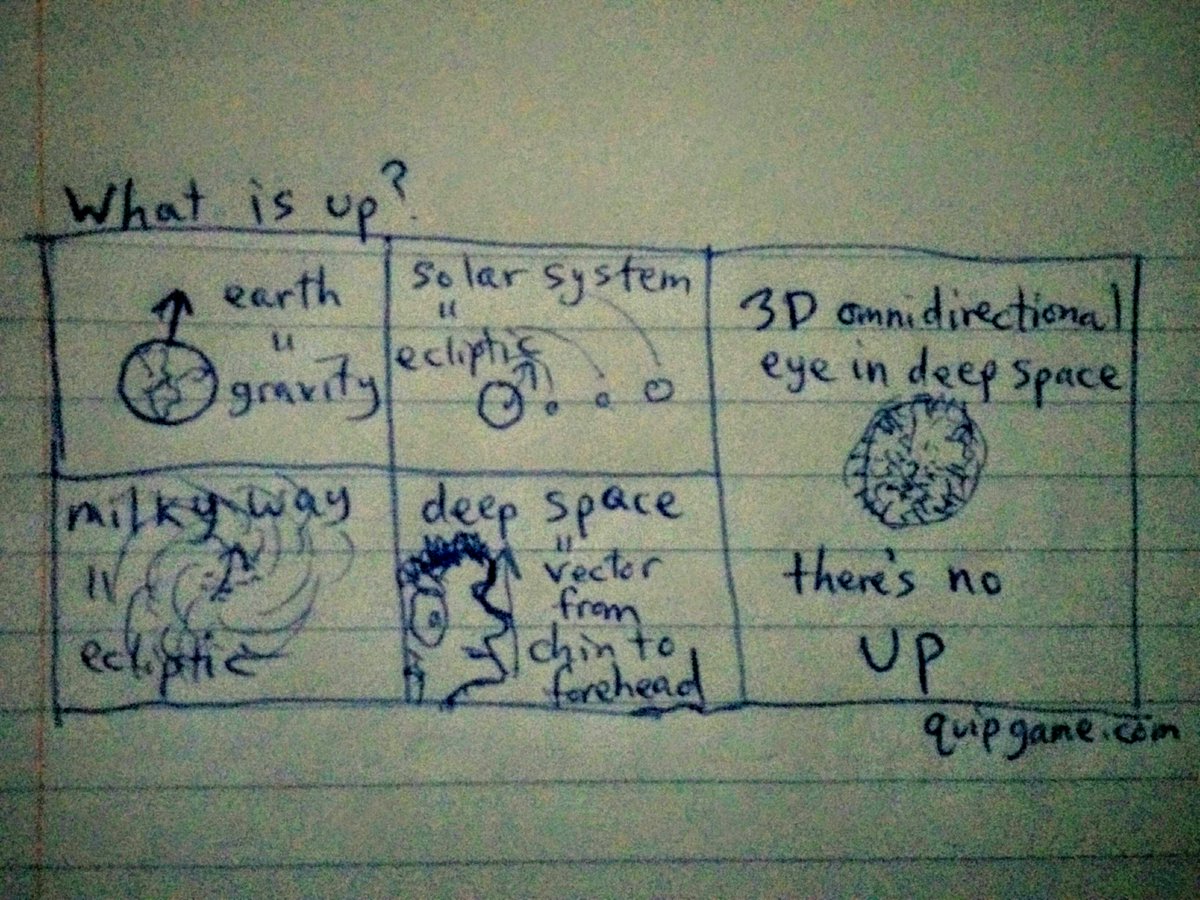 What is up?
earth
"
gravity
solar system
"
ecliptic
milky way
"
ecliptic
deep space
"
vector
from
chin to
forehead
3D omnidirectional
eye in deep space
there's no
up
quipgame.com